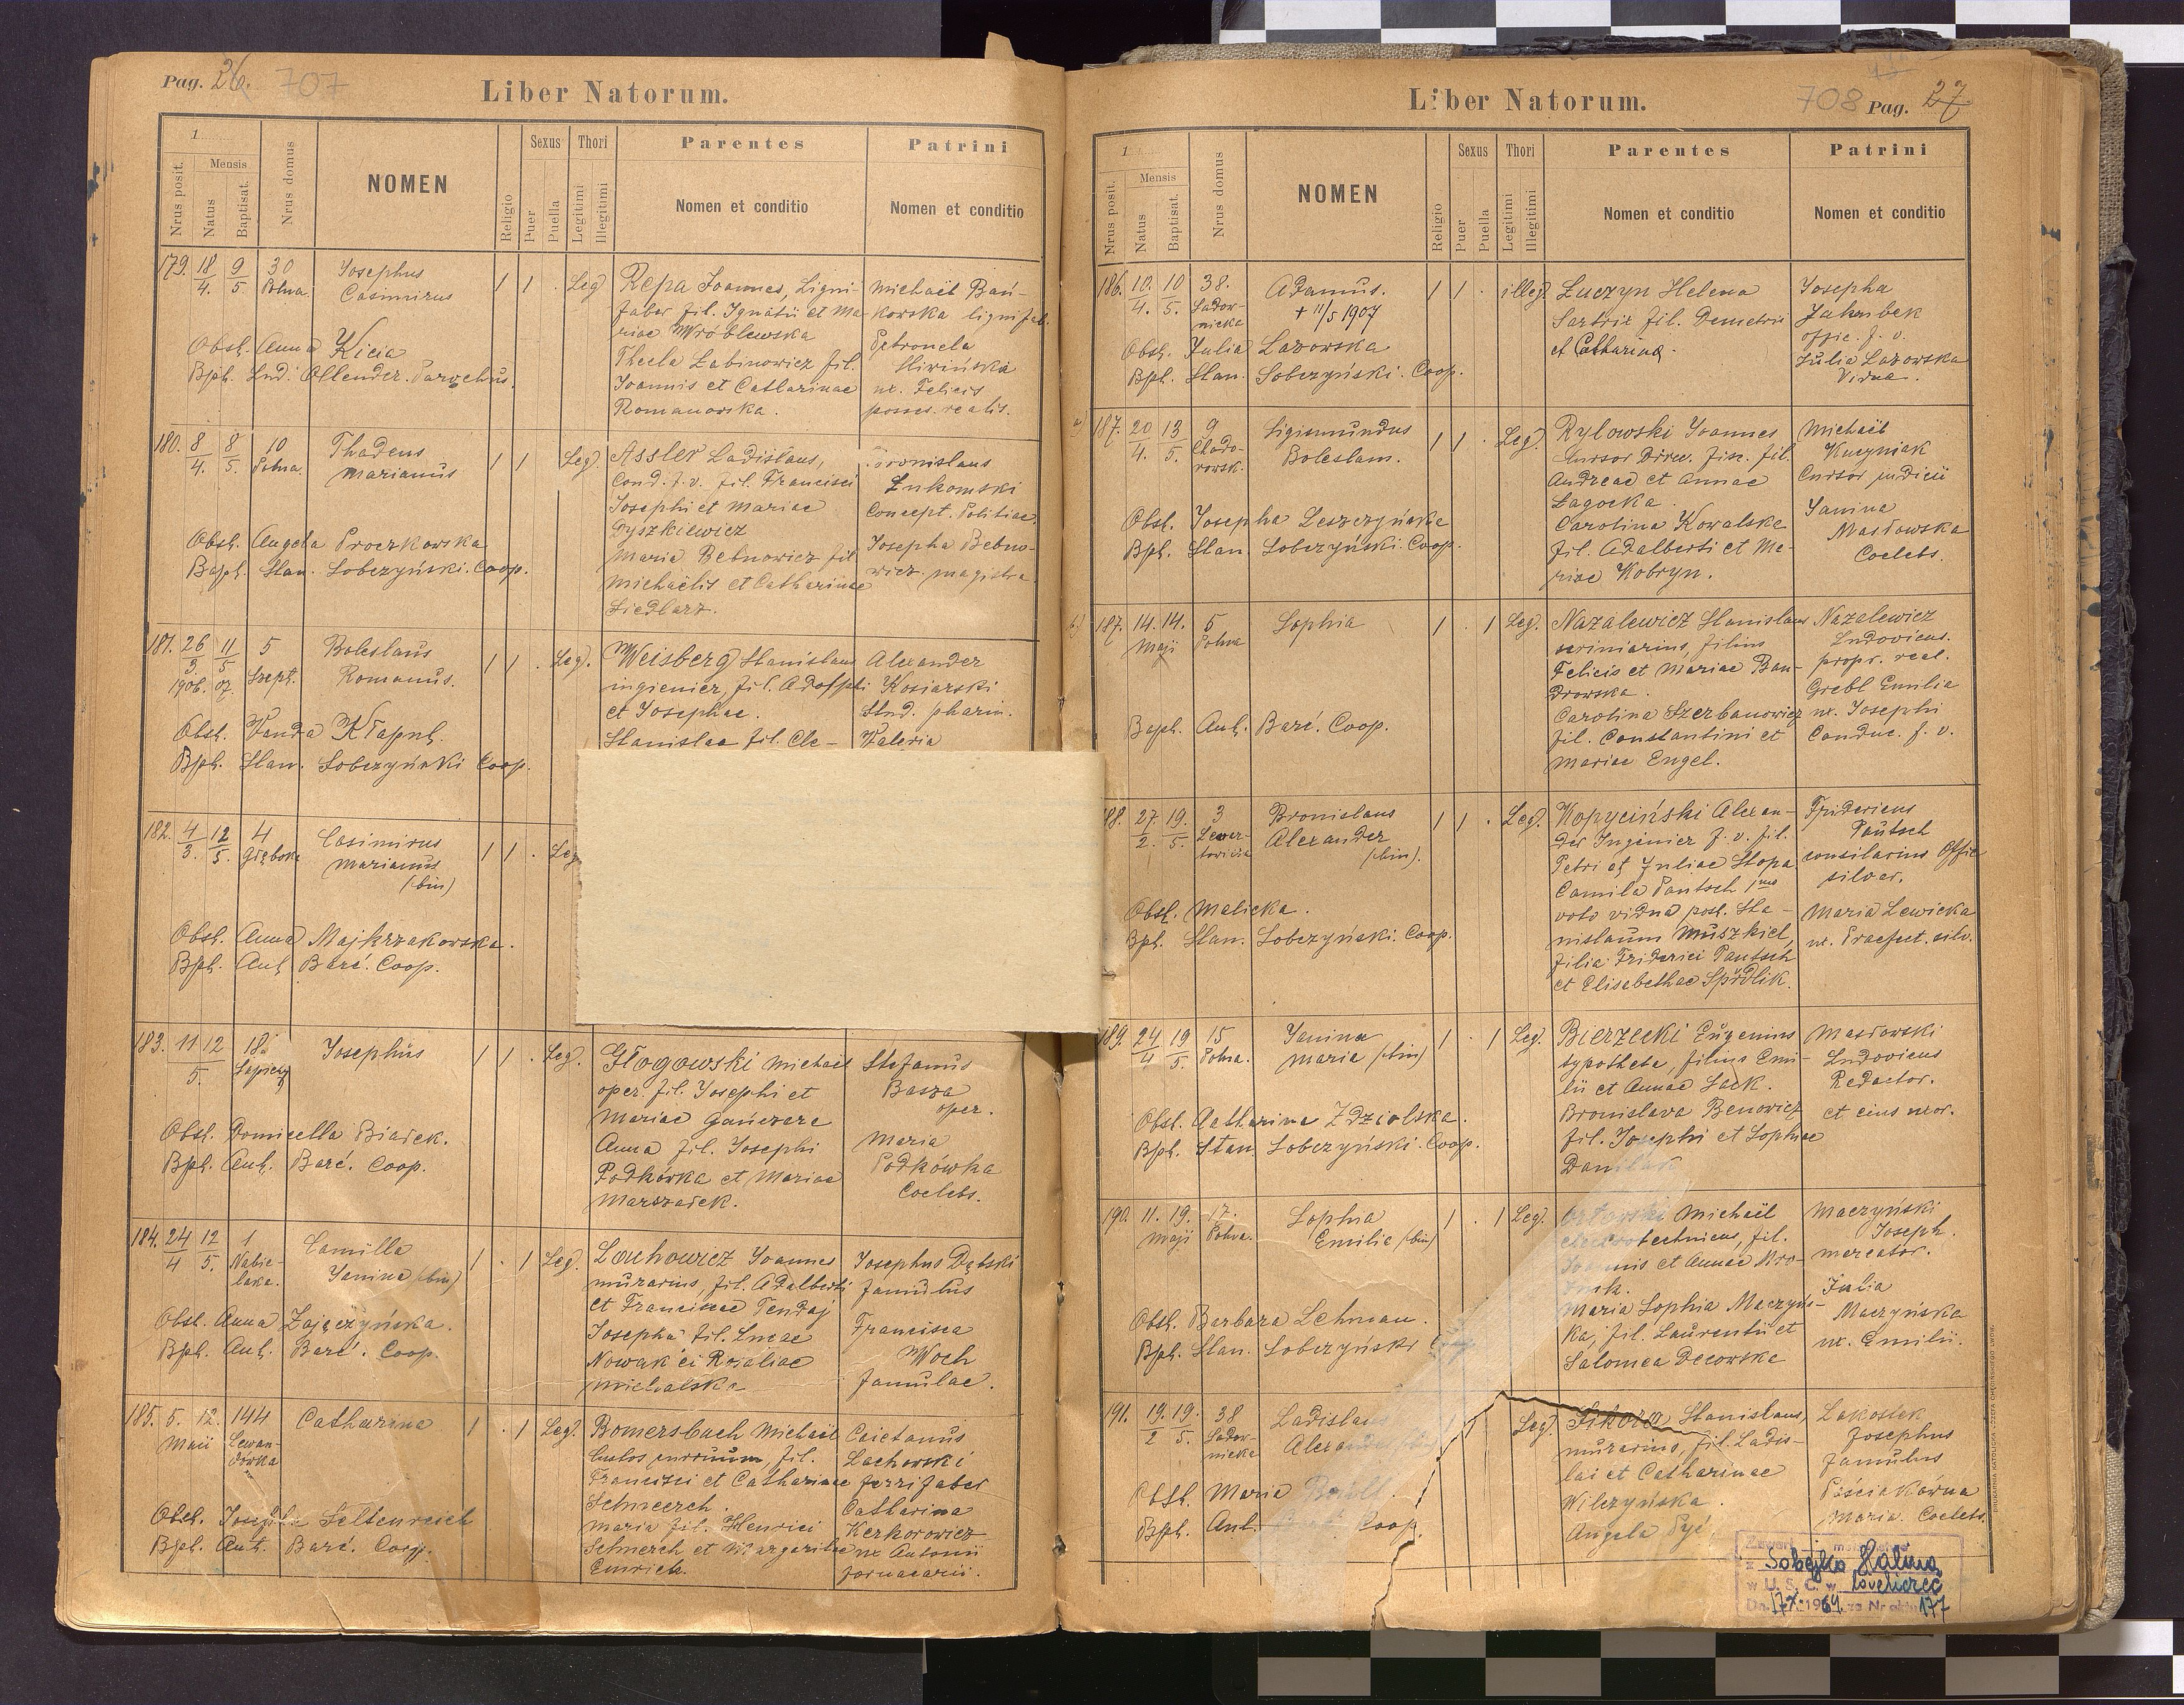 Pag. 26. 707
Liber Natorum.
1
Nrus posit.
Mensis
Natus
Baptisat.
Nrus domus
NOMEN
Religio
Sexus
Puer
Puella
Thori
Legitimi
Illegitimi
Parentes
Nomen et conditio
Patrini
Nomen et conditio
179. 18/4. 9/5 30
Josephus
Casimirus
1 1 . Leg.
Obst. Anna Kicia
Bpt. Lud. Ollender. Parochus.
Repa Joannes, Ligni-
faber fil. Ignatii et Ma-
riae Wróblewska
Thecla Łabinowicz fil.
Joannis et Catharinae
Romanowska.
Michaël Bań-
kowska lignifab.
Petronela
Śliwińska
ux. Felicis
posses. realis.
180. 8/4. 8/5. 10
Thadeus
Marianus
1 1 Leg.
Obst. Angela Proczkowska
Bapt. Stan. Sobczyński. Coop.
Assler Ladislaus,
Cond. f. v. fil. Francisci
Josephi et Mariae
Dyszkiewicz
Maria Bebnowicz fil
Michaëlis et Catharinae
Siedlarz.
Bronislaus
Łukomski
Concept. Politiae.
Josepha Bebno-
wicz magistra.
181. 26/3 1906. 11/5 07. 5
Szept.
Boleslaus
Romanus.
1 1 . Leg.
Obst. Wanda Kłaput.
Bpt. Stan. Sobczyński Coop.
Weisberg Stanislaus
ingienier, fil. Adolphi
et Josephae.
Stanislaa fil. Cle-
Alexander
Kosiarski
Stud. pharm.
Waleria
182. 4/3. 12/5. 4
Głęboka
Casimirus
Marianus
(bin)
1 1 . Leg
Obst. Anna Majkrzakowska.
Bpt. Ant. Baré. Coop.
183. 11 12/5. 18.
Sapiehy
Josephus
1 1 . Leg.
Obst. Domicella Białek.
Bpt. Ant. Baré. Coop.
Głogowski Michaël
oper. fil. Josephi et
Mariae Gańczarz
Anna fil. Josephi
Podkówka et Mariae
Marszałek.
Stefanus
Basza
oper.
Maria
Podkówka
Coelebs.
184. 24/4 12/5. 1
Nabie-
laka.
Camilla
Janina (bin)
1 . 1 Leg.
Obst. Anna Zajączyńska.
Bpt. Ant. Baré. Coop.
Łouhowicz Joannes
murarius, fil. Adalberti
et Franciscae Tendaj
Josepha fil. Lucae
Nowak et Rozaliae
Michalska
Josephus Dąbski
famulus
Francisca
Woch
famulae.
185. 5. 12. 144
Maii Lewan-
dówka
Catharina
1 . 1 Leg.
Obst. Josepha Seltenreich
Bpt. Ant. Baré. Coop.
Bomersbach Michaël
Custos curruum, fil.
Francisci et Catharinae
Schneerch.
Maria fil. Henrici
Schnerch et Margaritae
Emrich.
Caietanus
Lachowski
ferrifaber
Catharina
Kerkorowicz
ux Antonii
fornacarii.
Liber Natorum.
708 Pag. 27
1
Nrus posit.
Mensis
Natus
Baptisat.
Nrus domus
NOMEN
Religio
Sexus
Puer
Puella
Thori
Legitimi
Illegitimi
Parentes
Nomen et conditio
Patrini
Nomen et conditio
186. 10/4. 10/5. 38.
Sadow-
nicka
Adamus.
+ 11/5 1907
1 1 . illeg.
Obst. Julia Lazowska
Bpt. Stan. Sobczyński. Coop.
Łuczyn Helena
Sartrix fil. Demetrii
et Catharina.
Josepha
Jakubek
offic. f. v.
Julia Lazowska
Vidua.
a) 187. 20/4. 13/5. 9
Clodo-
rowsk.
Sigismundus
Boleslaus.
1 1 . Leg.
Obst. Josepha Leszczyńska
Bpt. Stan. Sobczyński. Coop.
Rylowski Joannes
Cursor Direc. fisc. fil.
Andreae et Annae
Lagocka
Carolina Kowalska
fil. Adalberti et Ma-
riae Kobryn.
Michaël
Kuczyniak
Cursor judicii
Janina
Masłowska
Coelebs.
b) 187. 14. 14. 5
Maji
Sophia
1 . 1 Leg.
Bapt. Ant. Baré. Coop.
Nazalewicz Stanislaus
scriniarius, filius
Felicis et Mariae Ban-
drowska.
Carolina Szerbanowicz
fil. Constantini et
Mariae Engel.
Nazalewicz
Ludovicus.
propr. real.
Grebl Emilia
ux. Josephi
Conduc. f. v.
188. 27/2. 19/5. 3
Bronislaus
Alexander
(bin).
1 1 . Leg.
Obst. Malicka.
Bpt. Stan. Sobczyński. Coop.
Kopyciński Alexan-
der Ingenier f. v. fil.
Petri et Juliae Stopa
Camila Pautsch 1mo
voto vidua post. Sta-
nislaum Muszkiet,
filia Friderici Pautsch
et Elisabethae Spŕdlik.
Fridericus
Pautsch
consilarius Offic
silvar.
Maria Lewicka
ux. Praefect. silv.
189. 24/4 19/5. 15
Janina
Maria (bin)
1 . 1 Leg.
Obst. Catharina Zdziolska.
Bpt. Stan Sobczyński. Coop.
Bierzecki Eugenius
typotheta, filius Emi-
lii et Annae Sack.
Bronislava Benowicz
fil. Josephi et Sophiae
Masłowski
Ludovicus
Redactor.
et eius uxor.
190. 11. 19. 17.
Maji
Sophia
Emilie (bin)
1 . 1 Leg.
Obst. Barbara Lehman.
Bpt. Stan. Sobczyński
Michaël
electrotechnicus, fil.
Joannis et Annae Wro-
Maria Sophia Maczyńs-
ka, fil. Laurentii et
Salomea Decowska
Maczyński
Joseph.
mercator.
Julia
Maczyńska
ux. Emilii.
191. 19/2 19/5. 38
Sadow-
nicka
Ladislaus
1 Leg.
Obst. Maria
Bpt. Ant. Coop.
Sikora Stanislaus,
murarius, fil. Ladis-
lai et Catharinae
Wilczyńska.
Angela
Lakostek
Josephus
famulus
Pościakówna
Maria. Coelebs.
Sobejko Halina
w U. S. C. w
Dn. 17.X.1964 za Nr aktu 177